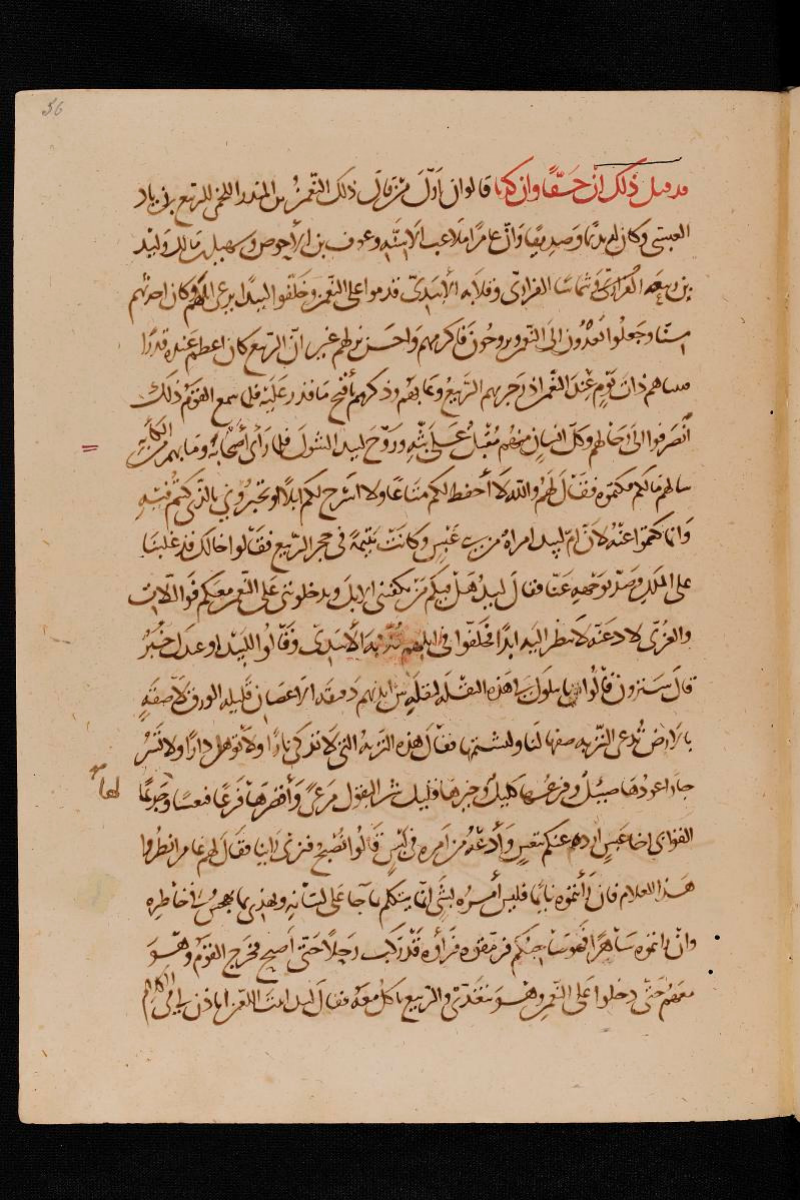 56
قد قيل ذلك ان حقا وان كذبا قالوا ان اول من قال ذلك النعمن بن المنذر اللخمى للربيع بن زياد
العبسى وكان له نديما وصديقا وان عامرا ملاعب الاسنه وعوف بن الاحوص وسهيل بن مالك ولبيد
بن ربيعه وشماسا الفزارى وقلابه الاسدى قدموا على النعمن وخلفوا لبيدا يرعى ابلهم وكان احدثهم
سنا وجعلوا يغدون الى النعمن ويروحون فاكرمهم واحسن نزلهم غير ان الربيع كان اعظم عنده قدرا
فبيناهم ذات يوم عند النعمن اذ رجز بهم الربيع وعابهم وذكرهم باقبح ما قدر عليه فلما سمع القوم ذلك
انصرفوا الى رحالهم وكل انسان منهم مقبل على بثه وروح لبيد الشول فلما راى اصحابه وما بهم من الكآبة
سالهم مالكم فكتموه فقال لهم والله لا احفظ لكم متاعا ولا اسرح لكم ابلا او تخبرونى بالذى كنتم فيه
وانما كتموا عنه لان ام لبيد امراة من عبس وكانت يتيمة فى حجر الربيع فقالوا خالك قد غلبنا
على الملك وصد بوجهه عنا فقال لبيد هل فيكم من يكفينى الابل ويدخلونى على النعمن معكم فو اللات
والعزى لادعنه لا ينظر اليه ابدا فخلفوا فى ابلهم قلابه الاسدى وقالوا للبيد او عندك خير
قال سترون قالوا نبلوك بهذه البقلة لبقلة بين ايديهم دقيقه الاغصان قليله الورق لاصقه
بالارض تدعى التربه صفها لنا واشتمها فقال هذه التربه التى لا تذكى نارا ولا توهل دارا ولا تسر
جارا عودها ضئيل وفرعها كليل وخيرها قليل شر البقول مرعى واقصرها فرعا فتعسا وجدعا
لها صح
القوا بى اخا عبس ارده عنكم بتعس وادعه من امره فى لبس قالوا نصبح فنرى راينا فقال لهم عامر انظروا
هذا الغلام فان رايتموه نايما فليس امره بشى انما يتكلم بما جا على لسانه ويهذى بما يهجس فى خاطره
وان رايتموه ساهرا فهو صاحبكم فرمقوه فراوه قد ركب رحلا حتى اصبح فخرج القوم وهو
معهم حتى دخلوا على النعمن وهو يتغدى والربيع ياكل معه فقال لبيد ابيت اللعن اتاذن لى فى الكلام